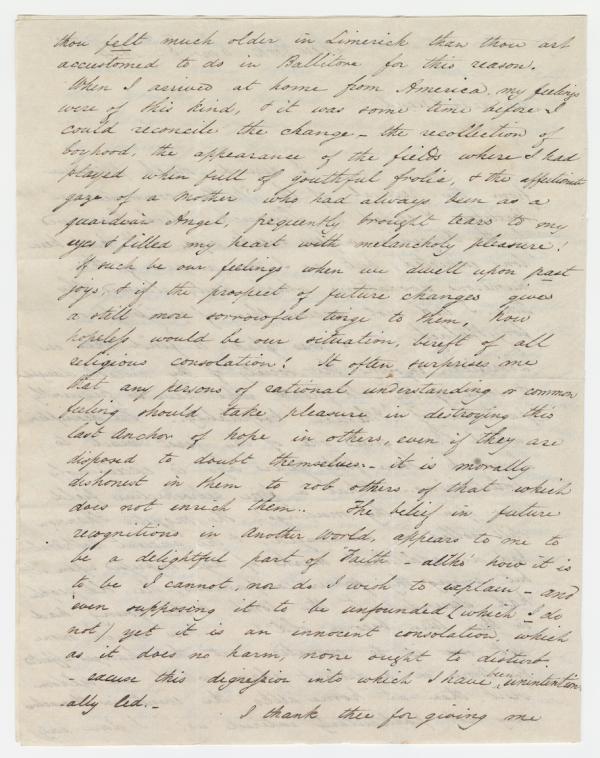 thou felt much older in Limerick than thou art
accustomed to do in Ballitore for this reason.
When I arrived at home from America, my feelings
were of this kind, & it was some time before I
could reconcile the change – the recollection of
boyhood, the appearance of the fields where I had
played when full of youthful frolic, & the affectionate
gaze of a Mother who had always been as a
guardian Angel, frequently brought tears to my
eyes & filled my heart with melancholy pleasure!
If such be our feelings when we dwell upon past
joys, & if the prospect of future changes gives
a still more sorrowful tinge to them, how
hopeless would be our situation, bereft of all
religious consolation! It often surprises me
that any persons of rational understanding or common
feeling should take pleasure in destroying this
last Anchor of hope in others, even if they are
disposed to doubt themselves – it is morally
dishonest in them to rob others of that which
does not enrich them.. The belief in future
recognitions in Another World, appears to me to
be a delightful part of Faith – altho' how it is
to be I cannot, nor do I wish to explain – and
even supposing it to be unfounded (which I do
not) yet it is an innocent consolation, which
as it does no harm, none ought to disturb.
– excuse this degression into which I have been unintention
-ally led. –
I thank thee for giving me